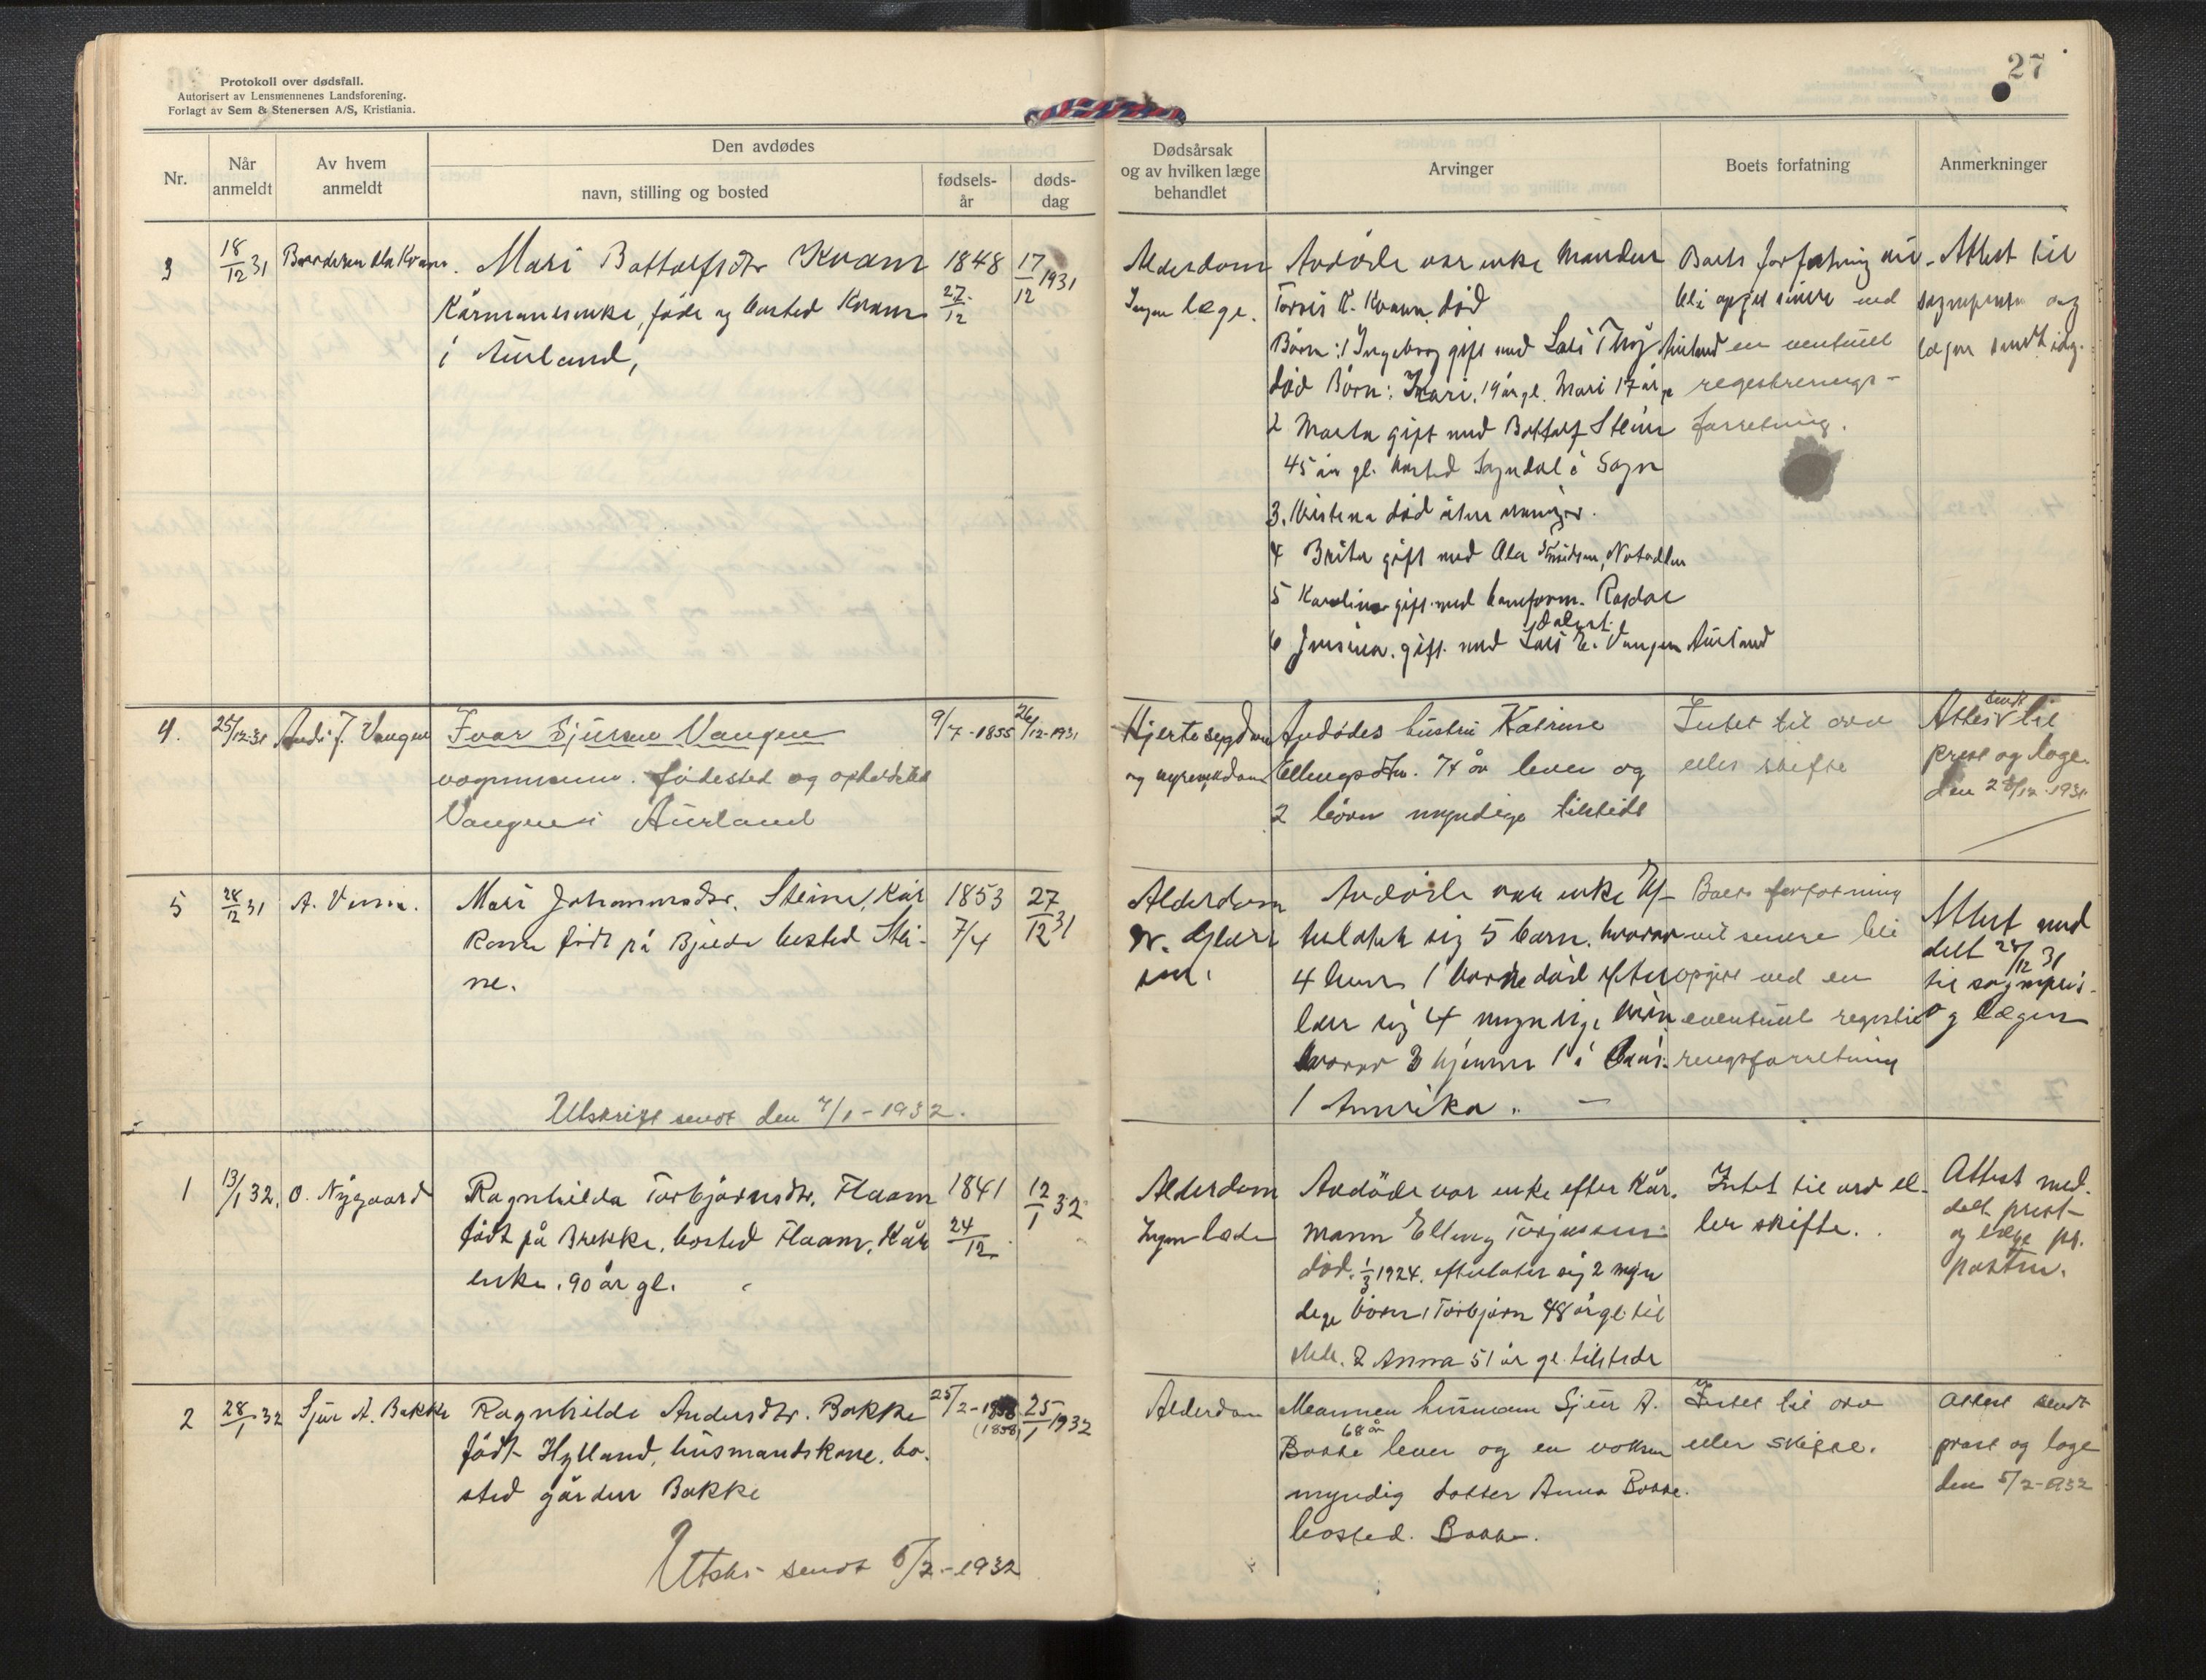 27
Protokoll over dødsfall.
Autorisert av Lensmennenes Landsforening.
Forlagt av Sem & Stenersen A/S, Kristiania.
Nr.
Når anmeldt
Av hvem anmeldt
Den avdødes
navn, stilling og bosted
fødsels-år
døds-dag
Dødsårsak og av hvilken læge behandlet
Arvinger
Boets forfatning
Anmerkninger
3
18/12 31
Mari Bottolfsdtr Kvam
Kårmannsenke, føde og bosted Kvam
i Aurland,
1848
27/12
17/12 1931
Alderdom
Ingen læge.
Avdøde var enke Manden
Torris K. Kvam død
Børn: 1 Ingeborg gift med Lars Thy Aurland
død Børn: Kari 19 år gl. Mari 17 år g
2 Marta gift med Bottolf Steine
45 år gl. bosted Sogndal i Sogn
3. Kristena død uten arvinger.
4 Brita gift med Ola Knudsen, Notodden
5 Karoline gift med baneform. Rasdal
Dalset
6 Jensina. gift. med Lars E. Vangen Aurland
Boets forfatning vil
bli opgit senere ved
en eventuel
registrerings-
forretning.
Attest til
sogneprest og
lægen sendt idag.
4.
25/12-31
Andr. J. Vangen
Ivar Sjursen Vangen
vognmann. fødested og opholdssted
Vangen i Aurland
9/7-1855
26/12-1931
Hjertesygdom
og nyresykdom
Avdødes hustru Katrine
Ellingsdtr. 74 år lever og
2 børn myndige tilstede
Intet til arv
eller skifte
Attest sendt til
prest og læge
den 28/12-1931
5
28/12 31
Mari Johannesdtr. Steine, Kår
kone født på Bjelde bosted Stei-
ne.
1853
7/4
27/12 31
Alderdom
Avdøde var enke Ef-
terlater sig 5 barn. hvorav
4 lever 1 barn død efter
later sig 4 myndige børn
hvorav 3 hjemme 1 i
1 Amerika. —
Boets forfatning
vil senere bli
opgit ved en
eventuel registre
ringsforretning
Attest med
delt 28/12 31
til sogneprest
og lægen
Utskrift sendt den 7/1-1932.
1
13/1 32.
O. Nygaard
Ragnhilda Torbjørnsdtr. Flaam
født på Brekke, bosted Flaam, Kår
enke. 90 år gl.
1841
24/12
12/1 32
Alderdom
Ingen læge
Avdøde var enke efter Kår.
mann Elling Torjussen
død. 1/3 1924. efterlater sig 2 myn
dege børn 1 Torbjørn 48 år gl. til
stede. 2 Anna 51 år gl. tilstede
Intet til arv el-
ler skifte.
Attest med.
delt prest
og læge pr.
posten.
2
28/1 32
Sjur A. Bakke
Ragnhilde Andersdtr. Bakke
født Hylland, husmandskone. bo.
sted gården Bakke
25/2-1858
(1858)
25/1 1932
Alderdom
Mannen husmann Sjur A.
68 år
Bakke lever og en voksen
myndig datter Anna Bakke.
bosted. Bakke.
Intet til arv
eller skifte.
Attest sendt
prest og læge
den 5/2-1932
Utskr- sendt 5/2-1932